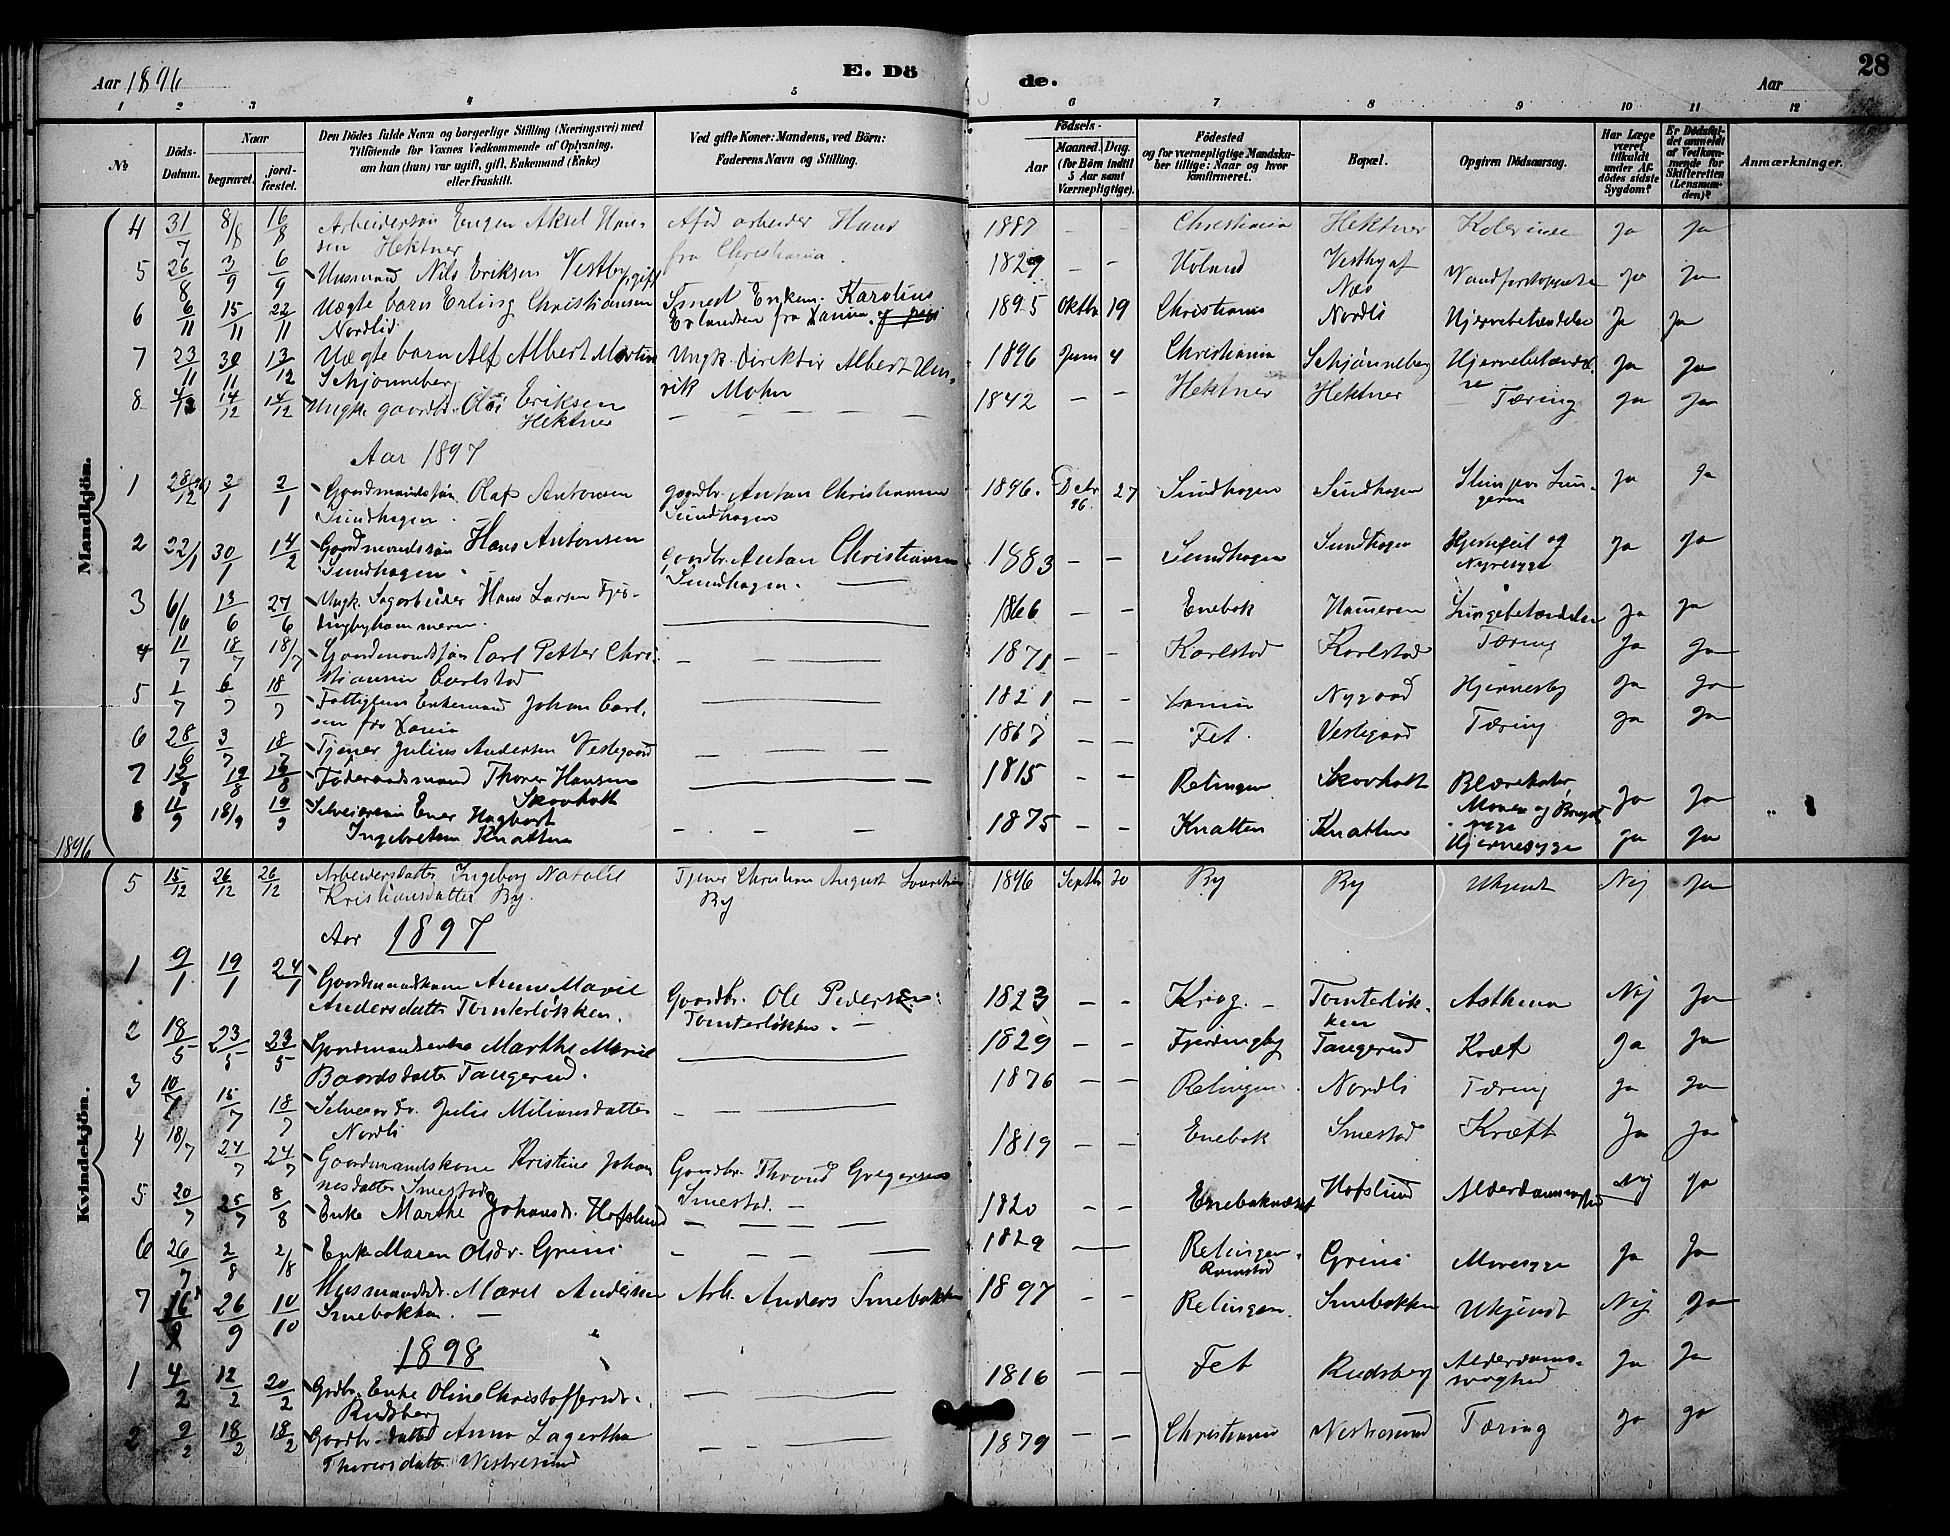 28
Aar 1896
E. Dö
de.
Aar
1 2 3 4 5 6 7 8 9 10 11 12
No
Döds-Datum.
Naar
begravet.
jordfæstet.
Den Dödes fulde Navn og borgerlige Stilling (Næringsvei) med
Tilföiende for Voxnes Vedkommende af Oplysning,
om han (hun) var ugift, gift, Enkemand (Enke)
eller fraskilt.
Ved gifte Koner: Mandens, ved Börn:
Faderens Navn og Stilling.
Födsels-
Aar
Maaned. Dag.
(for Börn indtil
5 Aar samt
Værnepligtige).
Födested
og for værnepligtige Mandskaber tillige: Naar og hvor
konfirmeret.
Bopæl.
Opgiven Dödsaarsag.
Har Læge
været
tilkaldt
under Afdödes sidste
Sygdom?
Er Dödsfaldet anmeldt
af Vedkommende for
Skifteretten
(Lensmanden)?
Anmærkninger.
Mandkjön.
4 31/7 8/8 16/8 Arbeidersøn Engen Aksel Hansen Hektner Afd arbeider Hans fra Christiania. 1887 – – Christiania Hektner Kolerine Ja Ja
5 26/8 3/9 6/9 Husmand Nils Eriksen Vestby gift 1829 – – Høland Vestby af Næs Vandforstoppelse ja ja
6 6/11 15/11 22/11 Uægte barn Erling Christiansen Nordlid Smed Enkem. Karolius Erlandsen fra Xania. 1895 Oktbr 19 Christiania Nordli Hjernebetændelse Ja Ja
7 23/11 30/11 13/12 Uægte barn Alf Albert Martin Schjønneberg Ungk. Direktør Albert Henrik Mohn 1896 Juni 4 Christiania Schjønneberg Hjernebetændelse Ja Ja
8 4/12 14/12 14/12 Ungk. gaardbr. Ole Eriksen Hektner – – – – 1842 – – Hektner Hektner Tæring Ja Ja
Aar 1897
1 28/12(96) 2/1 2/1 Gaardmandssøn Olaf Antonsen Sundhagen. gaardbr. Anton Christiansen Sundhagen 1896. Debr 96. 27 Sundhagen Sundhagen Slim paa Lungerne Ja Ja
2 22/1 30/1 14/2 Gaardmandssøn Hans Antonsen Sundhagen. Gaardbr. Anton Christiansen Sundhagen. 1883 – – Sundhagen Sundhagen Hjertefeil og Nyresyge Ja Ja
3 6/6 13/6 27/6 Ungk. Sagarbeider Hans Larsen Fjerdingbyhammeren. 1866 – – Enebak Hammeren Lungebetændelse Ja Ja
4 11/7 18/7 18/7 Gaardmandssøn Carl Petter Christiansen Carlstad – – – 1871 – – Karlstad Karlstad Tæring Ja Ja
5 1/7 6/7 18/7 Fattiglem Enkemand Johan Carlsen fra Xania 1821 – – Xania Nygaard Hjerneslag Ja Ja
6 28/6 3/7 18/7 Tjener Julius Andersen Vestgaard – – 1867 – – Fet. Vestgaard Tæring. Ja Ja
7 12/8 19/8 19/8 Føderaadsmand Thorer Hansen Skovholt 1815 – – Relingen Skovholt Blærekatar Ja Ja
8 11/9 18/9 19/9 Selveiersøn Ener Hagbart Ingebretsen Knatten – – – 1875 – – Knatten Knatten Mave og Brystsyge Hjernesyge Ja Ja
1896
Kvindekjön.
5 15/12 26/12 26/12 Arbeidersdatter Ingeborg Natalie Kristiansdatter By. Tjener Christian August By 1896 Septbr 20 By By Ukjendt Nej Ja
Aar 1897
1 9/1 19/1 24/1 Gaardmandskone Anne Marie Andersdatter Tomterløkken. Gaardbr. Ole Pedersen Tomterløkken. – 1823 – – Krog. – Tomterløkken Asthma Nej Ja
2 18/5 23/5 23/5 Gaardmandsenke Marthe Marie Baardsdatter Tangerud. 1829 – – Fjerdingby Tangerud Kræft Ja Ja
3 10/7 15/7 18/7 Selveierdr. Julie Miliansdatter Nordli – – 1876 – – Relingen. Nordli Tæring Ja Ja
4 18/7 24/7 24/7 Gaardmandskone Kristine Johannesdatter Smestad Gaardbr. Thorvd Gregersen Smestad. – 1819 – – Enebak Smestad Kræft Ja Ja
5 20/7 25/7 8/8 Enke Marthe Johansdr. Hofslund – – – – 1820 – – Enebaknæset Hofslund Alderdomssvaghed Nej Ja
6 26/7 2/8 2/8 Enke Maren Olsdr. Grini – – – – 1829 – Relingen. Ramstad Grini Mavesyge Ja Ja
7 16/9 26/9 10/10 Husmandsdr. Maret Andersen Smebakken – Arb. Anders Smebakken 1897 – – Relingen. Smebakken Ukjendt Nej Ja
1898
1 4/2 12/2 20/2 Grdbr. Enke Oline Christoffersdr. Rudsberg – – – 1816 – – Fet Rudsberg Alderdomssvaghed Ja Ja
2 9/2 18/2 18/2 Gaardbr. datter Anna Lagertha Thorersdatter Westresund – – – 1879 – – Christiania Westresund Tæring Ja Ja